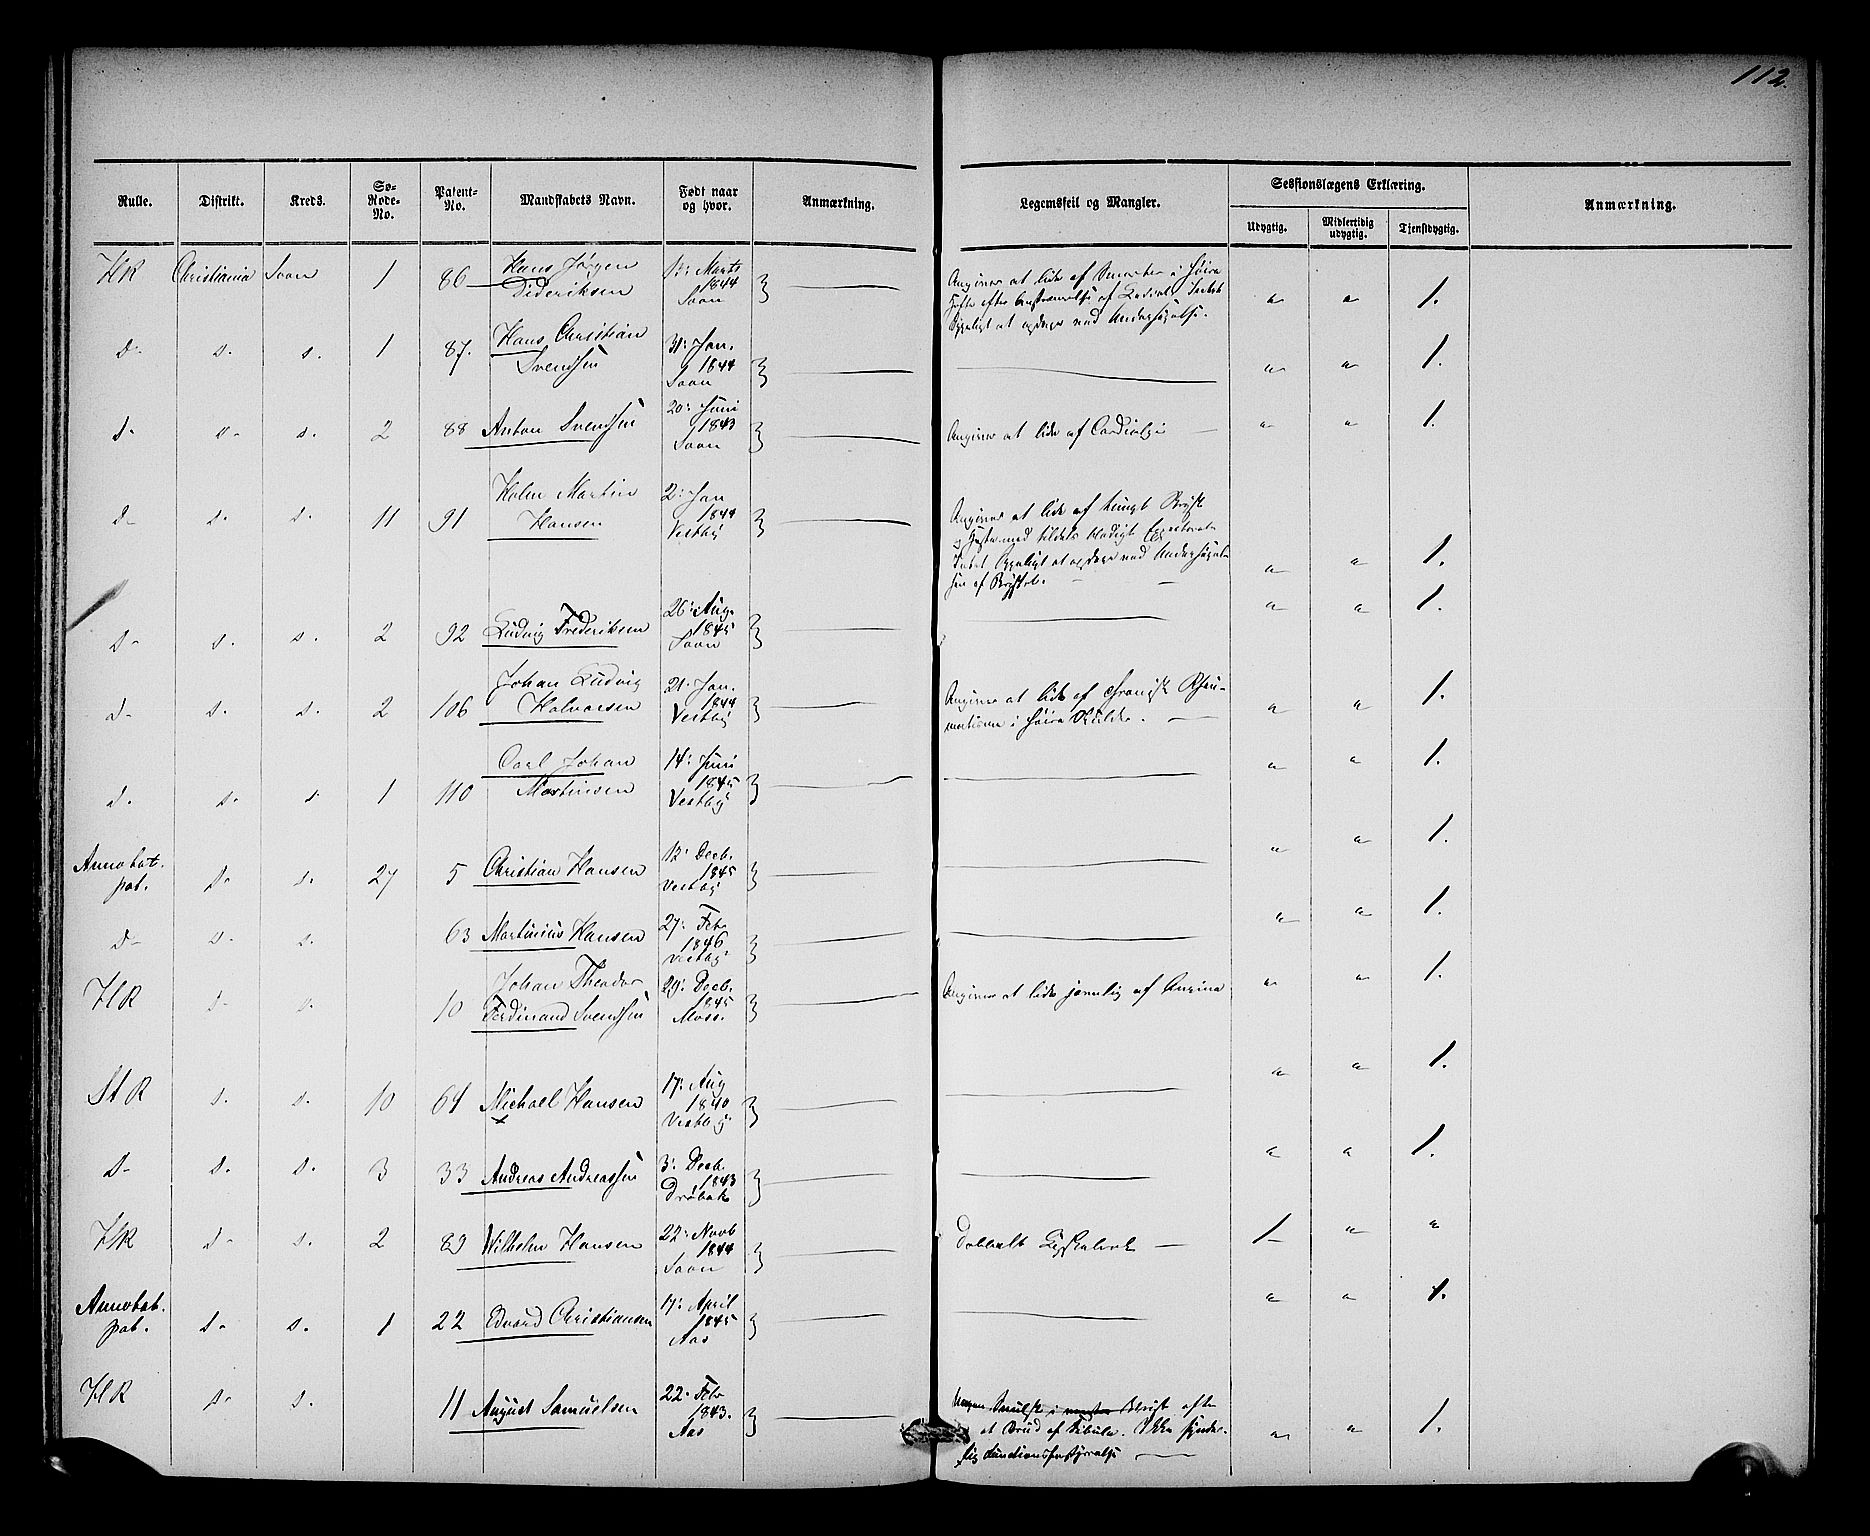 112.
Rulle. Distrikt. Kreds. Sø-Rode-No. Patent-No. Mandskabets Navn. Født naar og hvor. Anmærkning. Legemsfeil og Mangler. Sessionslægens Erklæring. Anmærkning.
Udygtig. Midlertidig udygtig. Tjenstdygtig.
HR Christiania Soon 1 86 Hans Jørgen Dideriksen 12: Marts 1844 Soon } — Angiver at lide af Smerter i høire
Hofte efter
at opdage ved Undersøgelse. " " 1.
D- D. D. 1 87. Hans Christian Svendsen 31: Jan. 1844 Soon } — — " " 1.
D- D- D. 2 88 Anton Svendsen 20: Juni 1843 Soon } — Angiver at lide af Cardialgi — " " 1.
D- D. D. 11 91 Holm Martin Hansen 2: Jan 1844 Vestby } — Angiver at lide af tungt Bryst
og Hoste med tildels blodigt
Intet at opdage ved Undersøgel-
sen af Brystet. — — " " 1.
D- D. D. 2 92 Ludvig Frederiksen 26: Aug. 1845 Soon } — — " " 1.
D- D. D. 2 106 Johan Ludvig Halvorsen 21: Jan. 1844 Vestby } — Angiver at lide af chronisk Rheu-
matisme i høire Skulder. — " " 1.
D. D. D 1 110 Carl Johan Martinsen 14: Juni 1845 Vestby } — — " " 1.
Annotat. pat. D- D. 27 5 Christian Hansen 12: Decb. 1845 Vestby } — — " " 1.
D- D. D. 63 Martinius Hansen 27: Febr 1846 Vestby } — — " " 1.
HR D- D. 10 Johan Theodor Ferdinand Svendsen 29: Decb. 1845 Moss. } — Angiver at lide jævnlig af Angina " " 1.
St R D. D. 10 64 Michael Hansen 17: Aug 1840 Vestby } — — " " 1.
D- D. D. 3 33 Andreas Andreassen 3: Decb. 1843 Drøbak } — — " " 1.
HR D- D. 2 89 Wilhelm Hansen 22: Novb 1844 Soon } — Dobbelt Lyskebrok — 1 " "
Annotat. pat. D- D. 1 22 Edvard Christiansen 17: April 1845 Aas } — — " " 1.
HR D- D. 11 August Samuelsen 22: Febr 1843. Aas } — Nogen i venstre efter
et Brud af Fibula. Ikke synder-
lig Functionsforstyrrelse — " " 1.